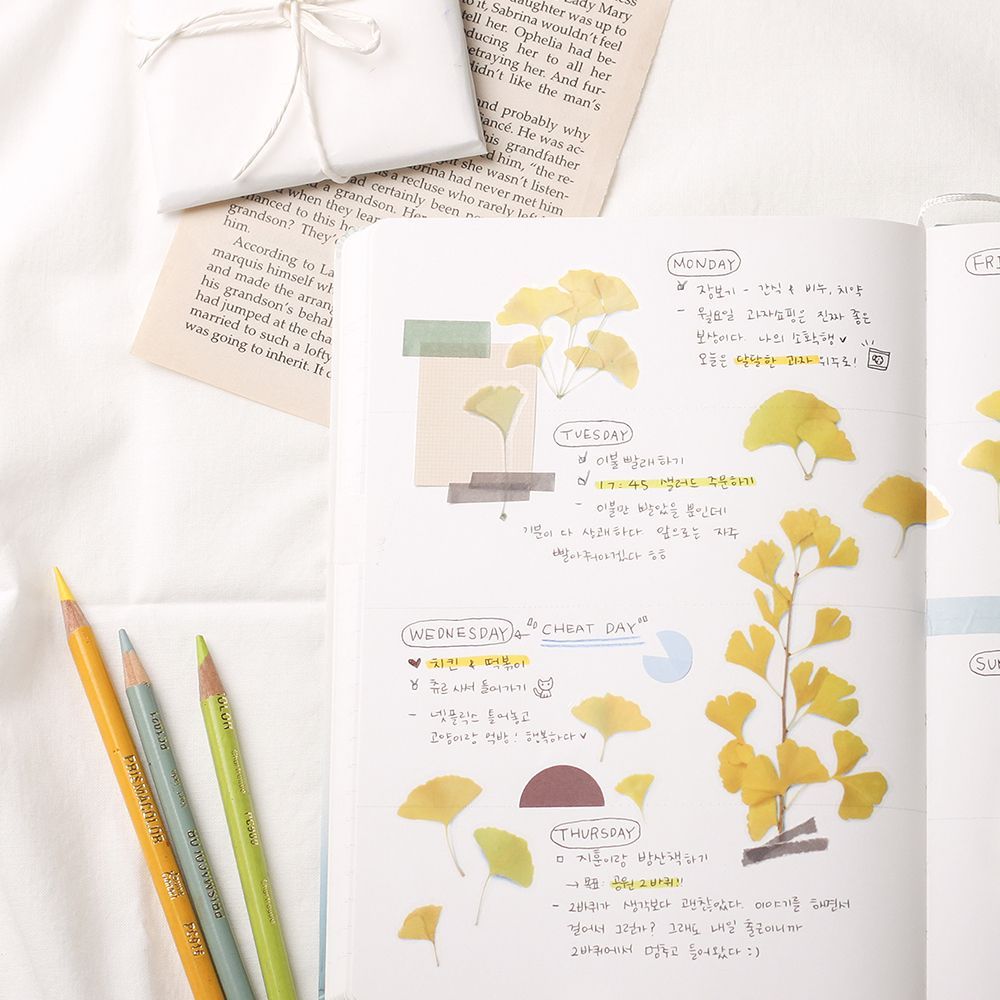 Lady Mary
daughter was up to
to it, Sabrina wouldn't feel
tell her. Ophelia had be-
ducing her to all her
betraying her. And fur-
didn't like the man's
and probably why
fiancé. He was ac-
his grandfather
him, "the re-
out she wasn't listen-
Sabrina had never met him
as a recluse who rarely left
a grandson. Her
had certainly been
when they lear
nhanced to this ho
grandson? They'
him.
According to La
marquis himself wh
and made the arrang
his grandson's behal
had jumped at the cha
married to such a lofty
was going to inherit. It c
MONDAY
장보기 - 간식 & 비누, 치약
- 월요일 과자쇼핑은 진짜 좋은
보상이다. 나의 소확행
오늘은 달달한 과자 위주로!
TUESDAY
이불 빨래하기
17:45 샐러드 주문하기
- 이불만 빨았을 뿐인데
기분이 다 상쾌하다. 앞으로는 자주
빨아줘야겠다 ㅎㅎ
WEDNESDAY "CHEAT DAY"
치킨 & 떡볶이
츄르 사서 들어가기
- 넷플릭스 틀어놓고
고양이랑 먹방! 행복하다
THURSDAY
지훈이랑 밤산책하기
→ 목표: 공원 2바퀴!!
- 2바퀴가 생각보다 괜찮았다. 이야기를 하면서
걸어서 그런가? 그래도 내일 출근이니까
2바퀴에서 멈추고 들어왔다 :)
FRI
SUN
PRISMACOLOR
PRISMACOLOR